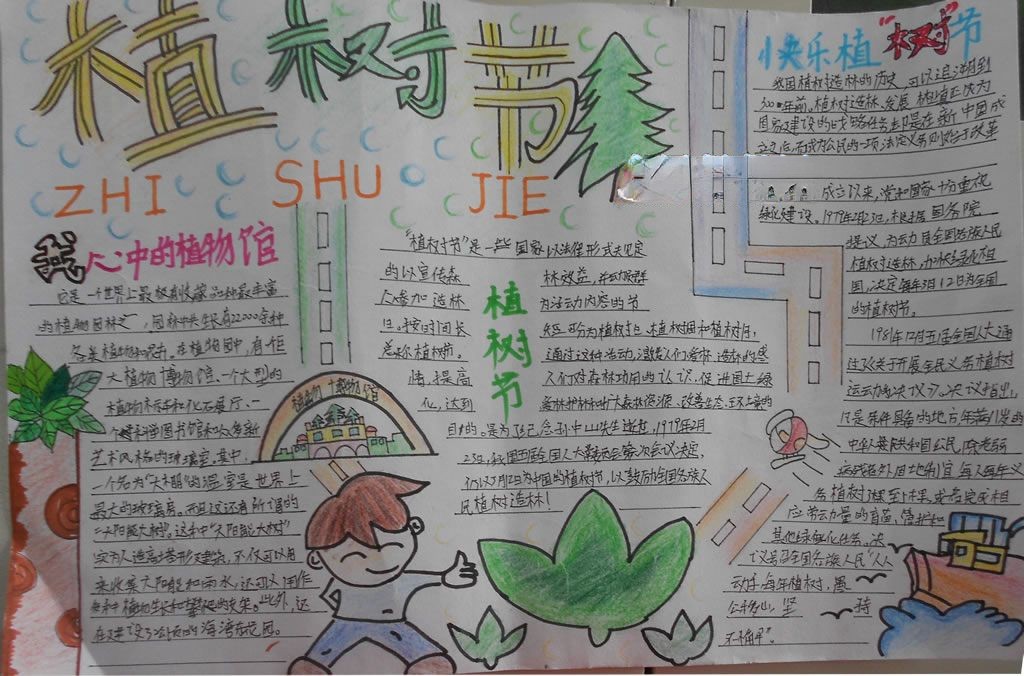 植树节
ZHI SHU JIE
我心中的植物馆
这是一个世界上最极有收藏品种最丰富
的植物园林之, 园林中共生长有22000余种
各类植物和
在植物园中,有作
大植物博物馆、一个大型的
植物标本和化石展厅、一
个科学图书馆和
艺术风格的玻璃室。其中,
一个名为
的温室是世界上
最大的玻璃房,而且这还有所谓的
“太阳能大树”。这种“太阳能大树”
实为人造高塔形建筑,不仅可以用
来收集太阳能和雨水,还可以用作
各种植物生长和攀爬的支架。此外,这
在建设了公顷的海湾花园。
植物博物馆
植树节
“植树节”是一些国家以法律形式规定
的以宣传森林效益,并动员群
众参加造林为活动内容的节
日。按时间长短可分为植树日、植树周和植树月,
总称植树节。通过这种活动,激发人们爱林、造林的感
情、提高人们对森林功用的认识,促进国土绿
化,达到爱林护林和扩大森林资源、改善生态环境的
目的。是为了纪念孙中山先生逝世,1979年2月
23日,我国五届全国人大
会议决定,
仍以3月12日为中国的植树节,以鼓励全国各族人
民植树造林!
快乐植“树”节
我国植树造林的历史,可以追溯到
300
年前。植树造林、发展林业正成为
国家建设的战略任务却是在新中国成
立之后,而成为公民的一项法定义务则始于改革
成立以来,党和国家十分重视
绿化建设,1979年2月23日,根据国务院
提议,为动员全国各族人民
植树造林,加快绿化祖
国,决定每年3月12日为全国
的植树节。
1981年12月五届全国人大通
过了关于开展全民义务植树
运动的决议》。决议指出,
凡是条件具备的地方年满11岁的
中华人民共和国公民,除老弱
病残者外,因地制宜,每人每年义
务植树3棵至5棵,或者完成相
应劳动量的育苗、管护和
其他绿化任务。决
议号召全国各族人民“人人
动手,每年植树,愚
公移山,坚持
不懈”。